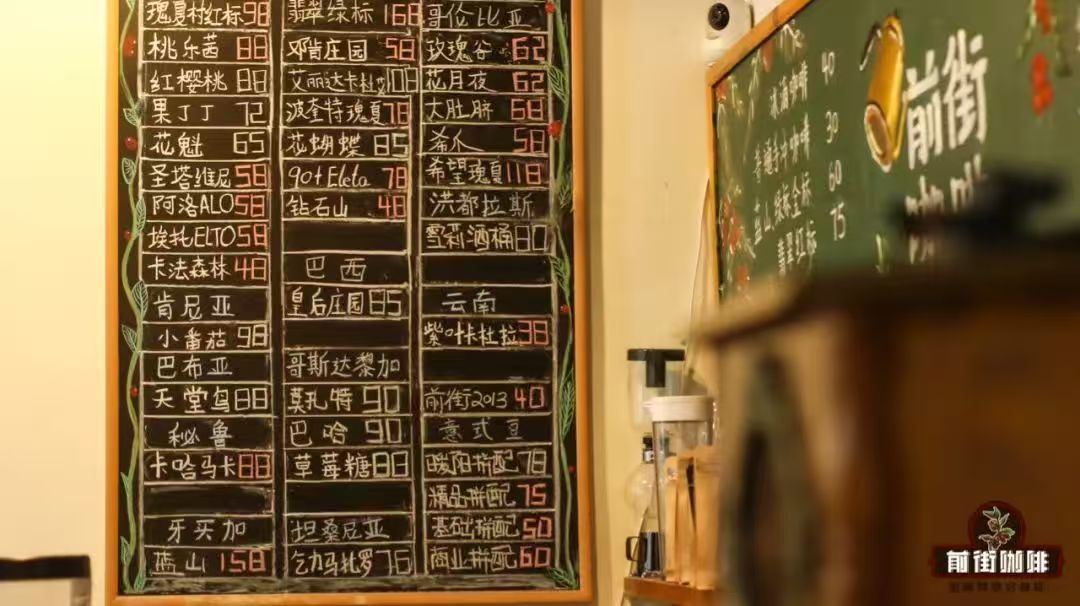 瑰夏村红标98
桃乐茜 88
红樱桃 88
果丁丁 72
花魁 65
圣塔维尼58
阿洛ALO58
埃托ELTO58
卡法森林48
肯尼亚
小番茄98
巴布亚
天堂鸟88
秘鲁
卡哈马卡88
牙买加
蓝山158
翡翠绿标168
邓肯庄园58
艾丽达卡杜艾108
波奎特瑰夏78
花蝴蝶85
90+Eleta 78
钻石山 48
巴西
皇后庄园85
哥斯达黎加
莫扎特90
巴哈90
草莓糖88
坦桑尼亚
乞力马扎罗76
哥伦比亚
玫瑰谷62
花月夜62
大肚脐68
希爪58
希望瑰夏118
洪都拉斯
雪莉酒桶80
云南
紫叶卡杜拉38
前街2013 40
意式豆
暖阳拼配78
精品拼配75
基础拼配50
商业拼配60
前街
咖啡
冰滴咖啡 40
30
蓝山 60
翡翠红标 75
前街咖啡